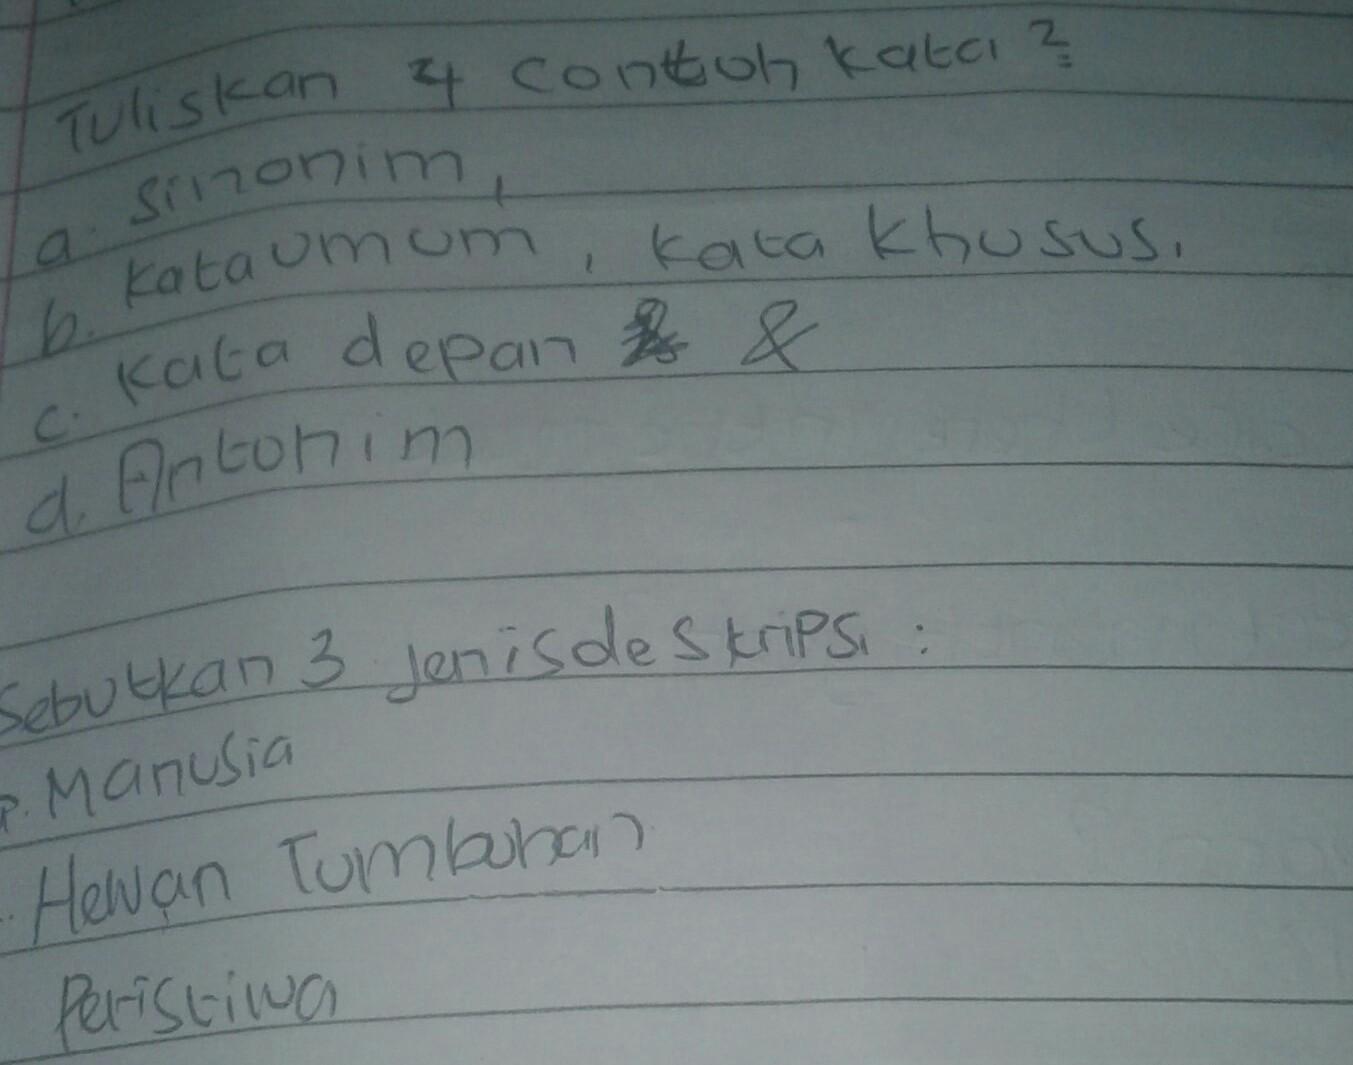 Tuliskan 4 contoh kata?
a. Sinonim,
b. kata umum, kata khusus.
c. Kata depan &
d. Antonim
Sebutkan 3 jenis deskripsi :
Manusia
Hewan Tumbuhan
Peristiwa